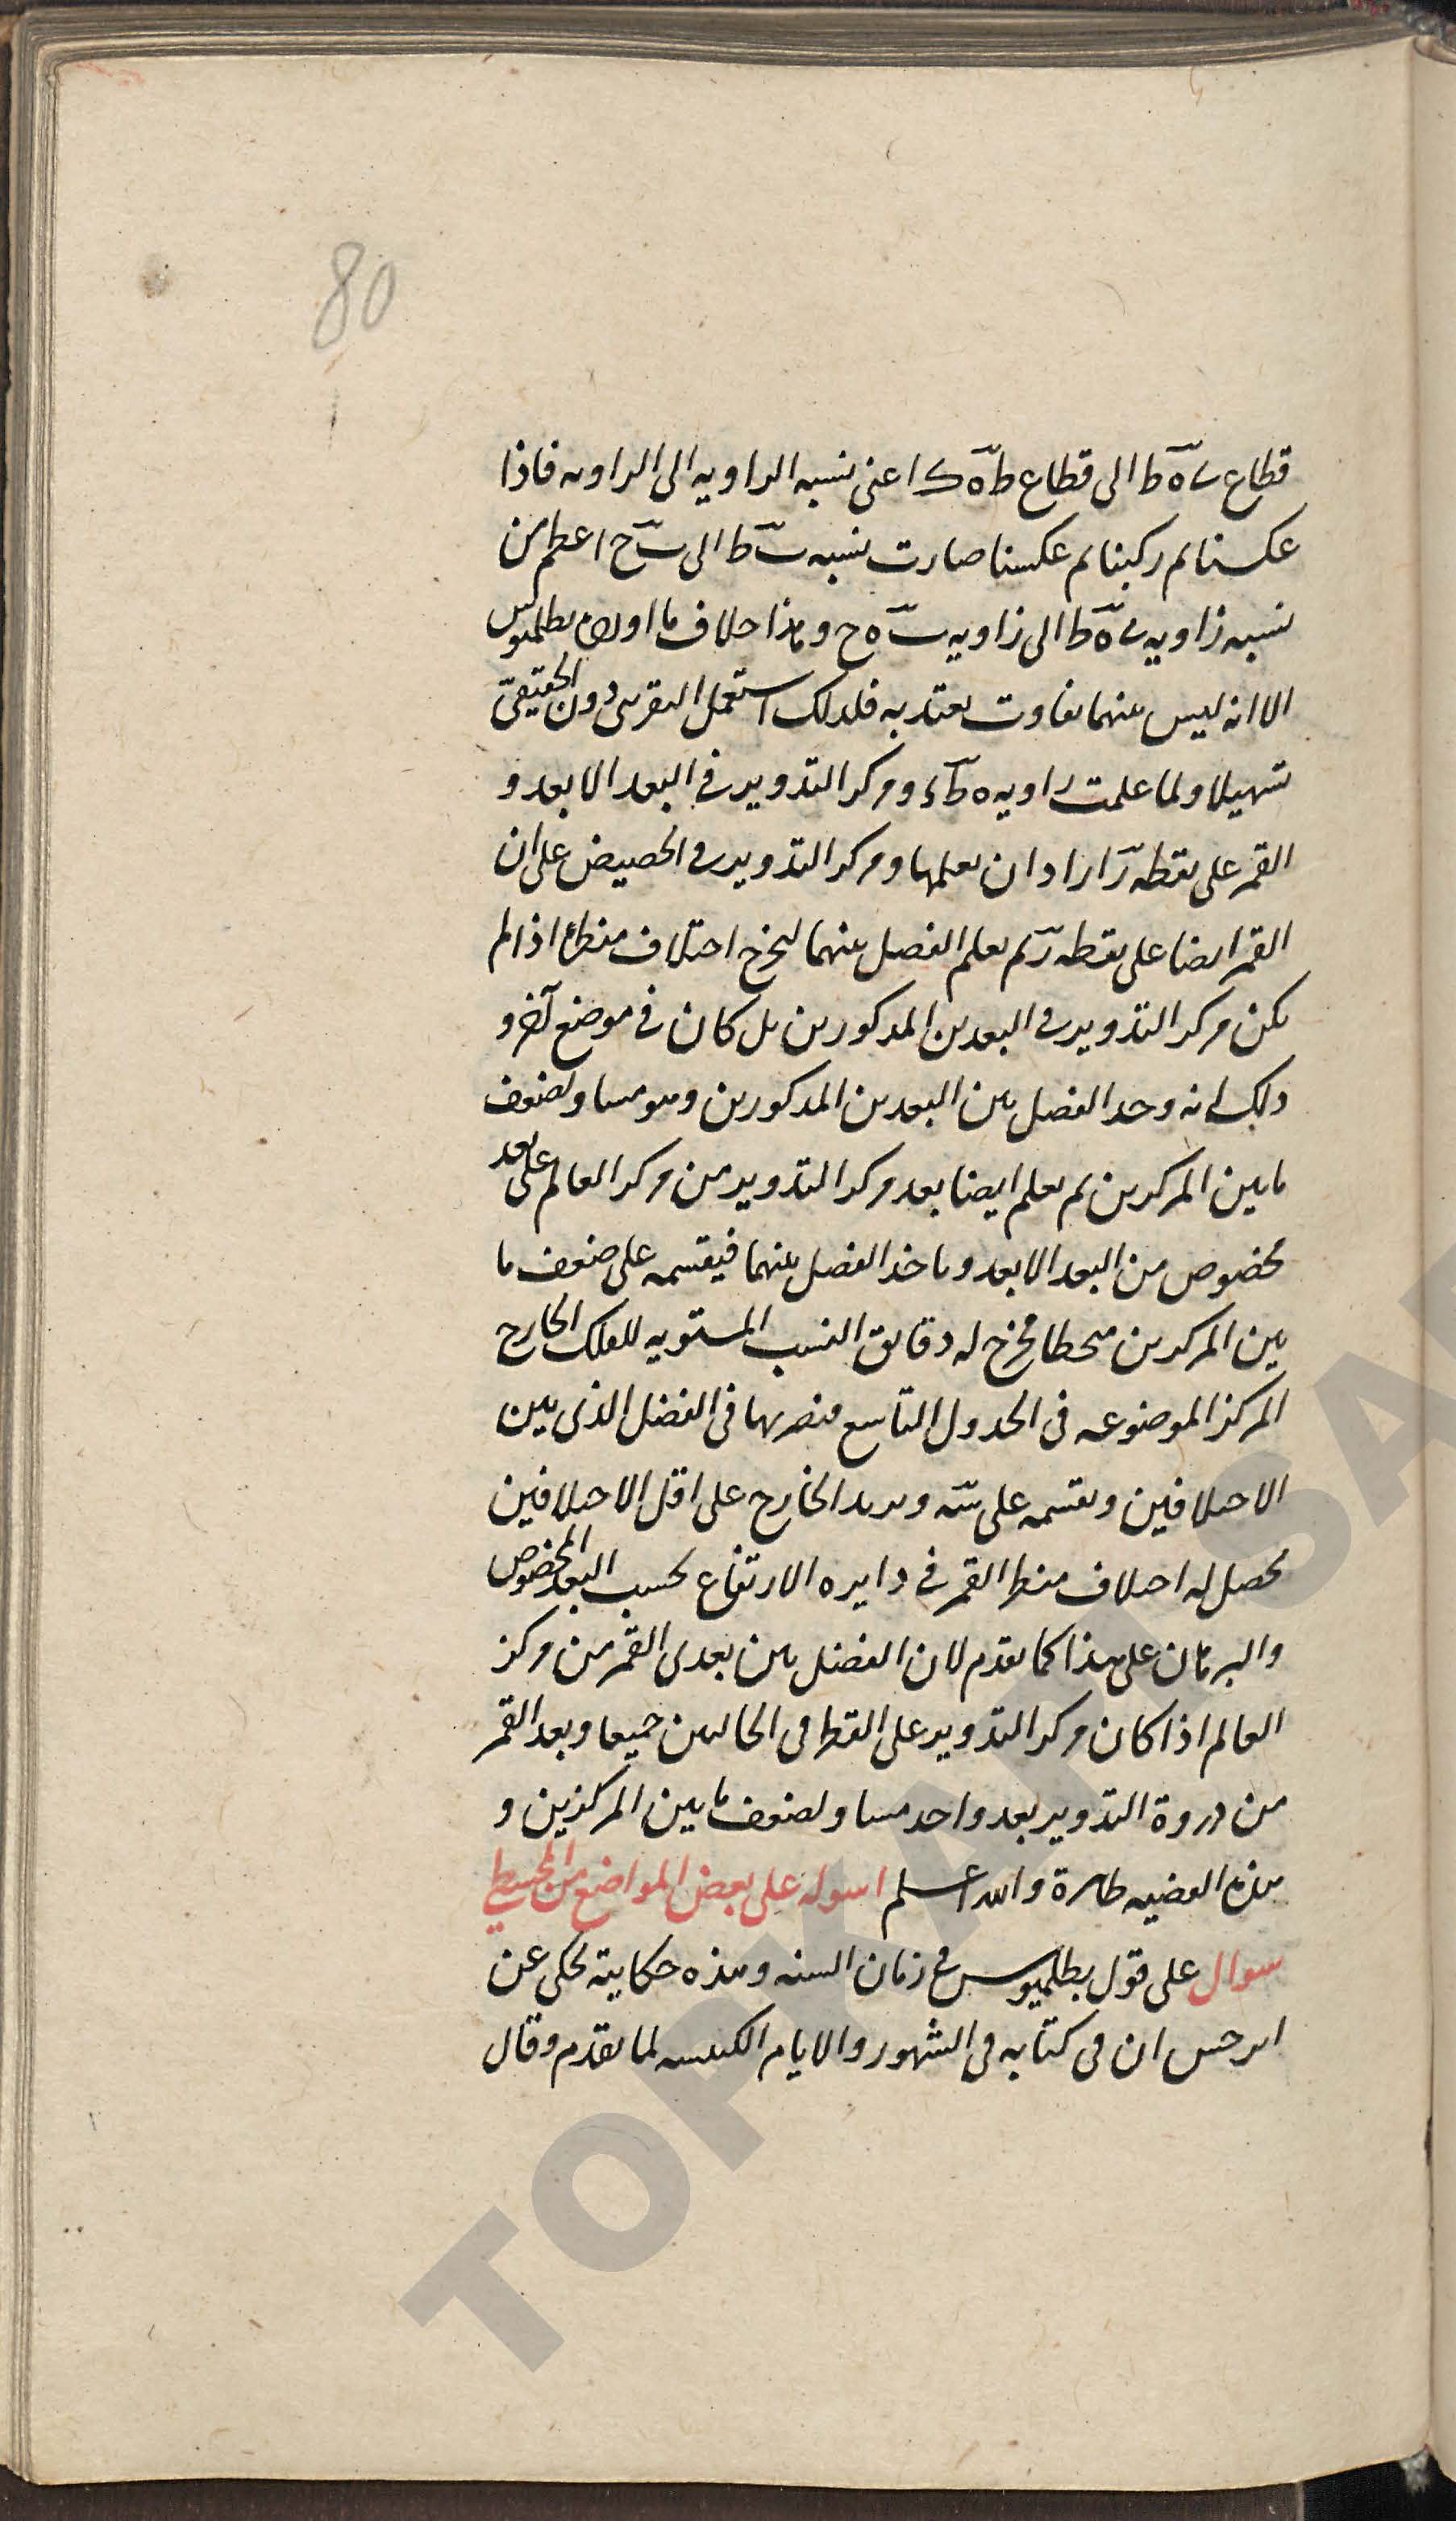 80
قطاع ى ه ط الى قطاع ط ه ك اعنى نسبه الزاويه الى الزاويه فاذا
عكسنا ثم ركبنا ثم عكسنا صارت نسبه ب ط الى ب ح اعظم من
نسبه زاويه ى ه ط الى زاويه ب ه ح وهذا خلاف ما اورده بطلميوس
الا انه ليس بينهما تفاوت يعتد به فلذلك استعمل التقريبى دون الحقيقىّ
تسهيلا ولما علمت زاويه ه ط ء ومركز التدوير فى البعد الابعد و
القمر على نقطه ز اراد ان يعلمها ومركز التدوير فى الحضيض على ان
القمر ايضا على نقطه ز ثم يعلم الفضل بينهما ليخرج اختلاف منظره اذا لم
يكن مركز التدوير فى البعدين المذكورين بل كان فى موضع آخر و
ذلك انه وجد الفضل بين البعدين المذكورين وهو مساو لضعف
ما بين المركزين ثم يعلم ايضا بعد مركز التدوير من مركز العالم على بعد
مخصوص من البعد الابعد وياخذ الفضل بينهما فيقسمه على ضعف ما
بين المركزين منحطا فيخرج له دقايق النسب المستويه للفلك الخارج
المركز الموضوعه فى الجدول التاسع فيضربها فى الفضل الذى بين
الاختلافين ويقسمه على ستّه ويزيد الخارج على اقل الاختلافين
يحصل له اختلاف منظر القمر فى دايره الارتفاع بحسب البعد المخصوص
والبرهان على هذا كما تقدم لان الفضل بين بعدى القمر من مركز
العالم اذا كان مركز التدوير على القطر فى الحالين جميعا وبعد القمر
من ذروة التدوير بعد واحد مساو لضعف ما بين المركزين و
هذه القضيه ظاهرة والله اعلم اسوله على بعض المواضع من المجسطي
سوال على قول بطلميوس فى زمان السنه وهذه حكايته يحكى عن
ابرخس ان فى كتابه فى الشهور والايام الكبيسه لما تقدم وقال
TOPKAPI SA